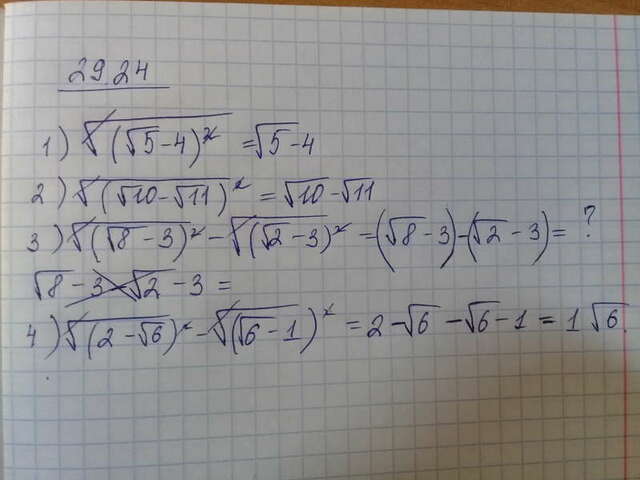 29.24
1) √(√5-4)² = √5-4
2) √(√10-√11)² = √10-√11
3) √(√8-3)² - √(√2-3)² = (√8-3)-(√2-3) = ?
√8-3-√2-3 =
4) √(2-√6)² - √(√6-1)² = 2-√6-√6-1 = 1√6